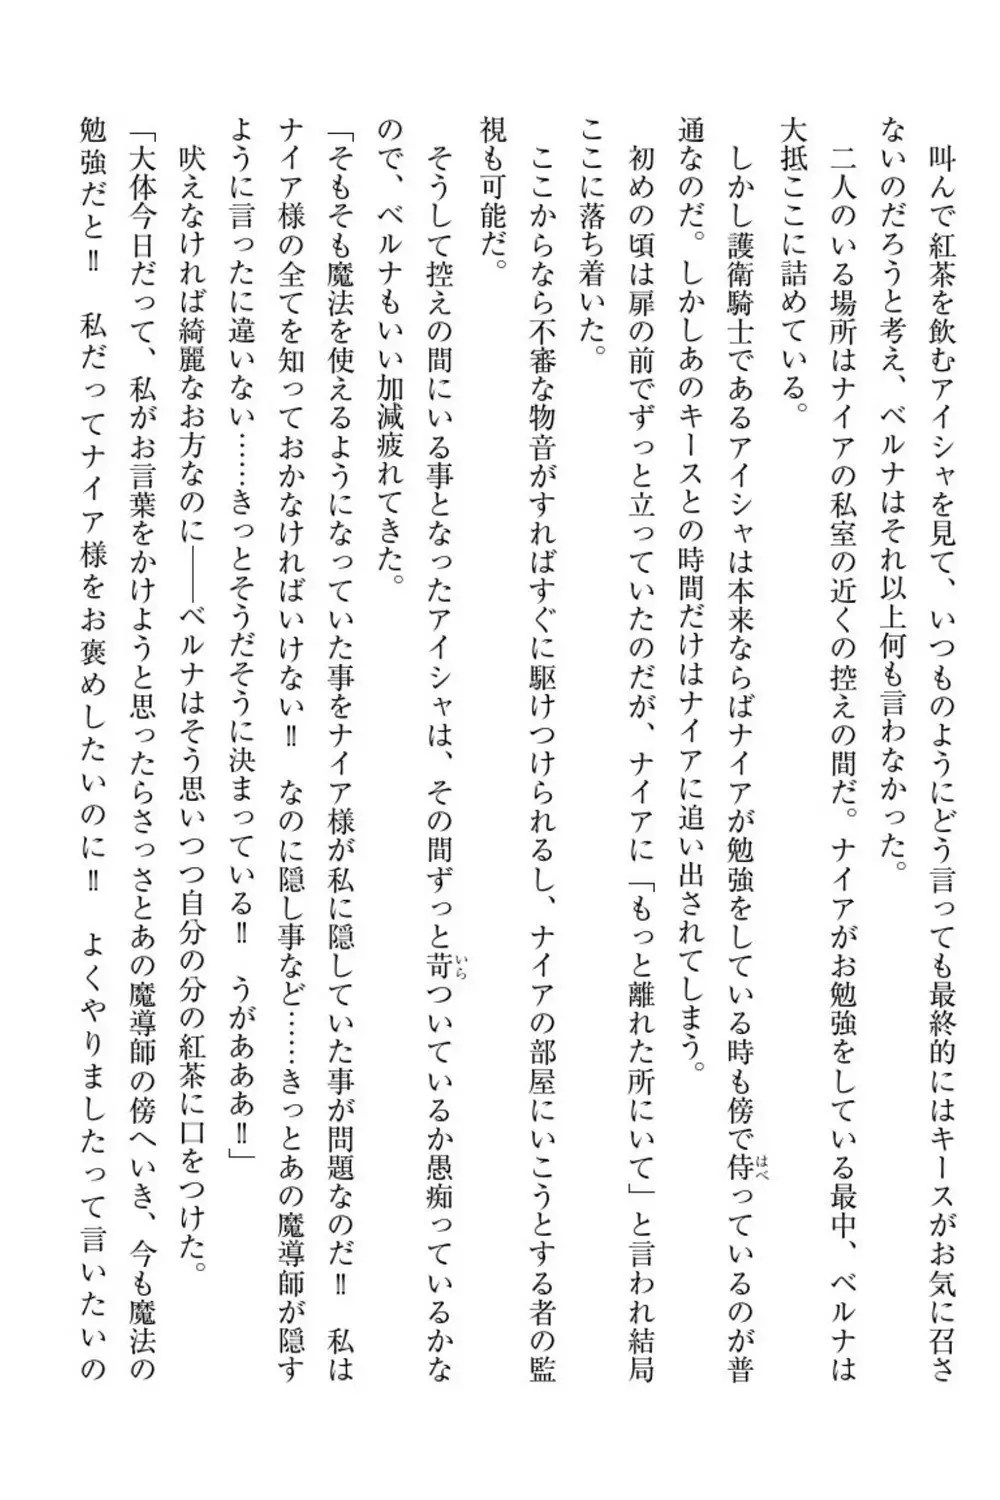 叫んで紅茶を飲むアイシャを見て、いつものようにどう言っても最終的にはキースがお気に召さ
ないのだろうと考え、ベルナはそれ以上何も言わなかった。
二人のいる場所はナイアの私室の近くの控えの間だ。ナイアがお勉強をしている最中、ベルナは
大抵ここに詰めている。
しかし護衛騎士であるアイシャは本来ならばナイアが勉強をしている時も傍で侍っているのが普
通なのだ。しかしあのキースとの時間だけはナイアに追い出されてしまう。
初めの頃は扉の前でずっと立っていたのだが、ナイアに「もっと離れた所にいて」と言われ結局
ここに落ち着いた。
ここからなら不審な物音がすればすぐに駆けつけられるし、ナイアの部屋にいこうとする者の監
視も可能だ。
そうして控えの間にいる事となったアイシャは、その間ずっと苛ついているか愚痴っているかな
ので、ベルナもいい加減疲れてきた。
「そもそも魔法を使えるようになっていた事をナイア様が私に隠していた事が問題なのだ‼　私は
ナイア様の全てを知っておかなければいけない‼　なのに隠し事など……きっとあの魔導師が隠す
ように言ったに違いない……きっとそうだそうに決まっている‼　うがあああ‼」
吠えなければ綺麗なお方なのに――ベルナはそう思いつつ自分の分の紅茶に口をつけた。
「大体今日だって、私がお言葉をかけようと思ったらさっさとあの魔導師の傍へいき、今も魔法の
勉強だと‼　私だってナイア様をお褒めしたいのに‼　よくやりましたって言いたいの